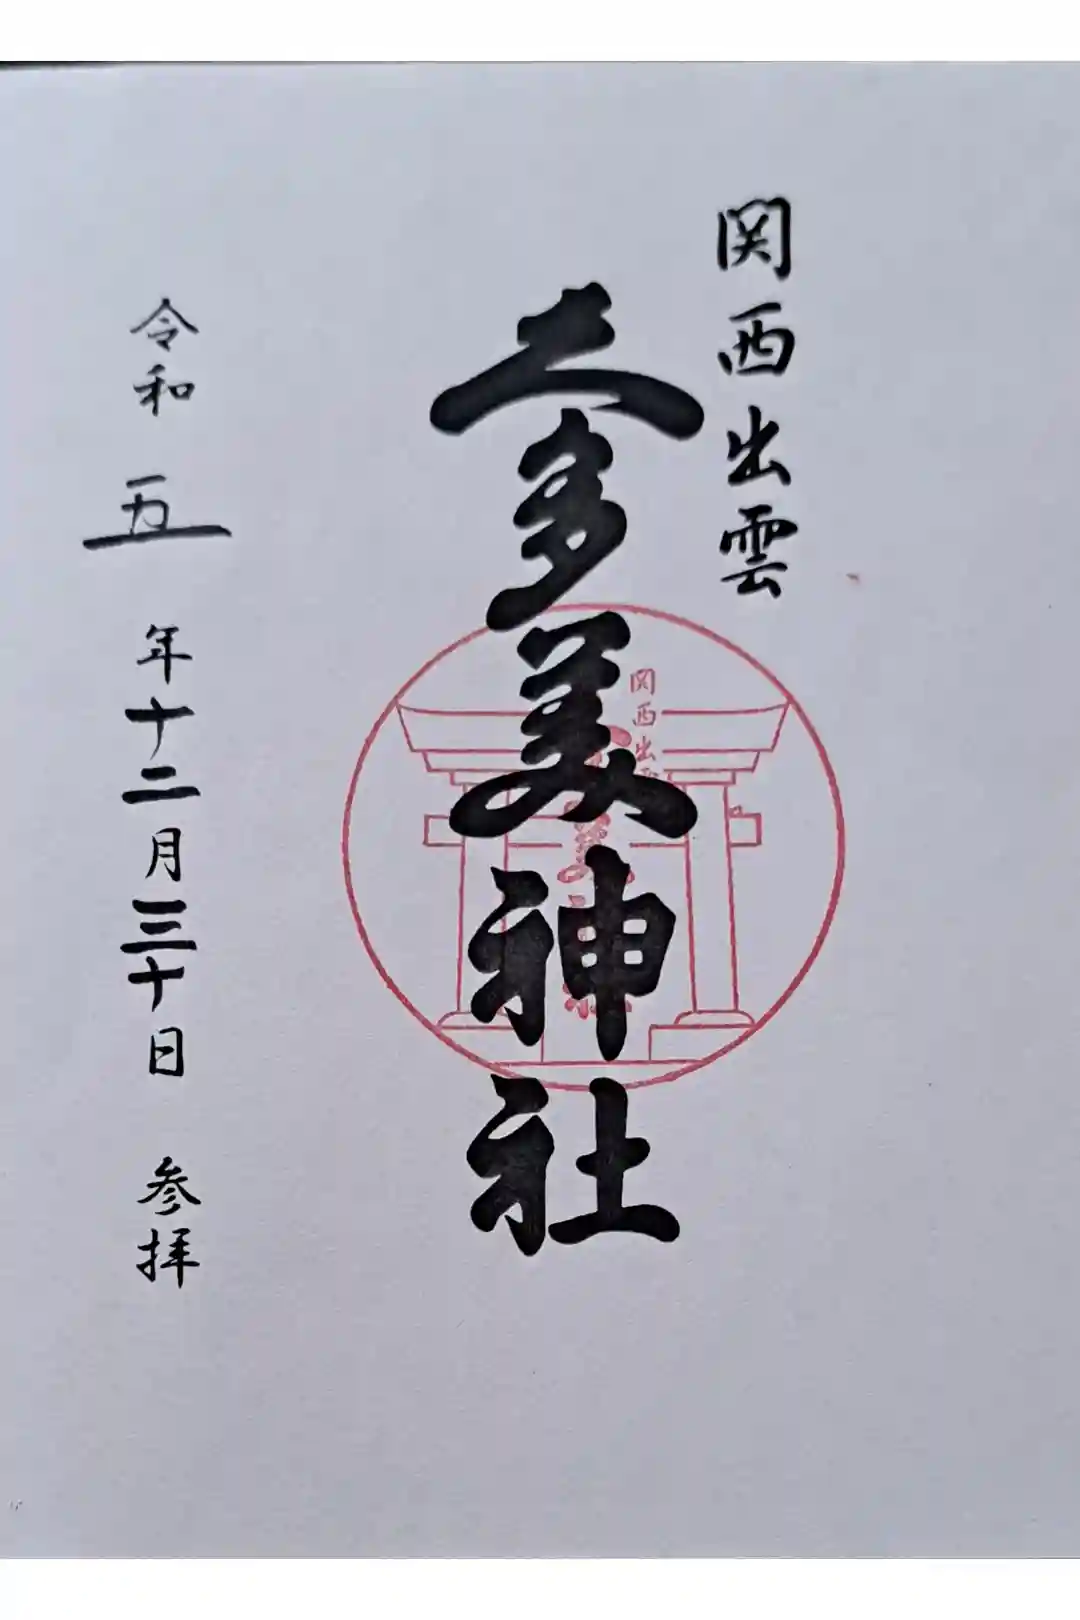 関西出雲
久多美神社
令和 五 年十二月三十日 参拝
関西出